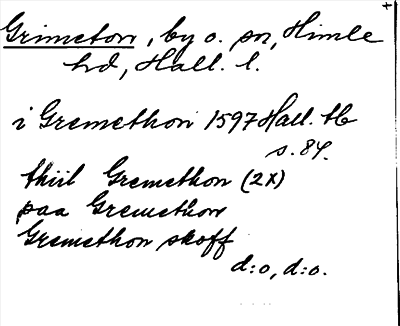 Grimeton, by o. sn, Himle
hd, Hall. l.
i Gremethon 1597 Hall. tb
s. 84.
thiil Gremethon (2x)
paa Gremethon
Gremethon skoff
d:o, d:o.